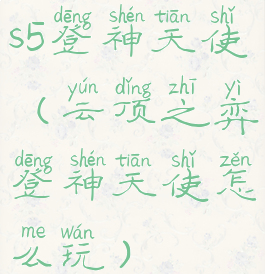 dēng shén tiān shǐ
s5登神天使
yún dǐng zhī yì
(云顶之弈
dēng shén tiān shǐ zěn
登神天使怎
me wán
么玩)